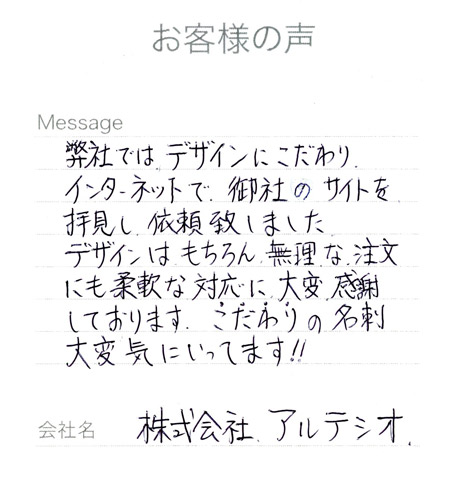 お客様の声
Message
弊社では、デザインにこだわり、
インターネットで、御社の サイトを
拝見し、依頼致しました。
デザインは もちろん、無理な 注文
にも柔軟な対応に、大変 感謝
しております。こだわりの名刺
大変気にいってます!!
会社名 株式会社 アルテシオ.